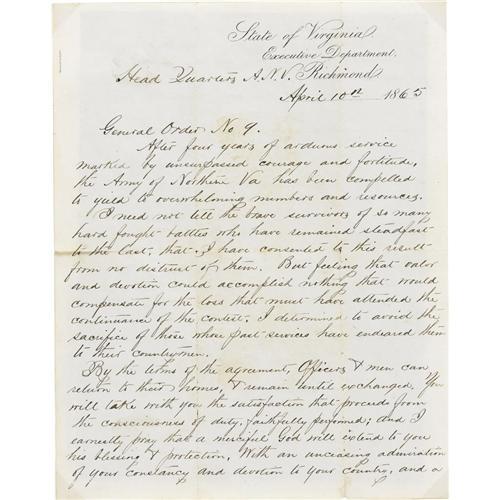 State of Virginia,
Executive Department.
Head Quarters A.N.V. Richmond,
April 10th 1865
General Order No 9.
After four years of arduous service
marked by unsurpassed courage and fortitude,
the Army of Northern Va has been compelled
to yield to overwhelming numbers and resources.
I need not tell the brave survivors of so many
hard fought battles who have remained steadfast
to the last, that I have consented to this result
from no distrust of them. But feeling that valor
and devotion could accomplish nothing that would
compensate for the loss that must have attended the
continuance of the contest, I determined to avoid the
sacrifice of those whose past services have endeared them
to their countrymen.
By the terms of the agreement, Officers & men can
return to their homes, & remain until exchanged. You
will take with you the satisfaction that proceeds from
the consciousness of duty, faithfully performed; and I
earnestly pray that a merciful God will extend to you
his blessing & protection. With an unceasing admiration
of your constancy and devotion to your country, and a